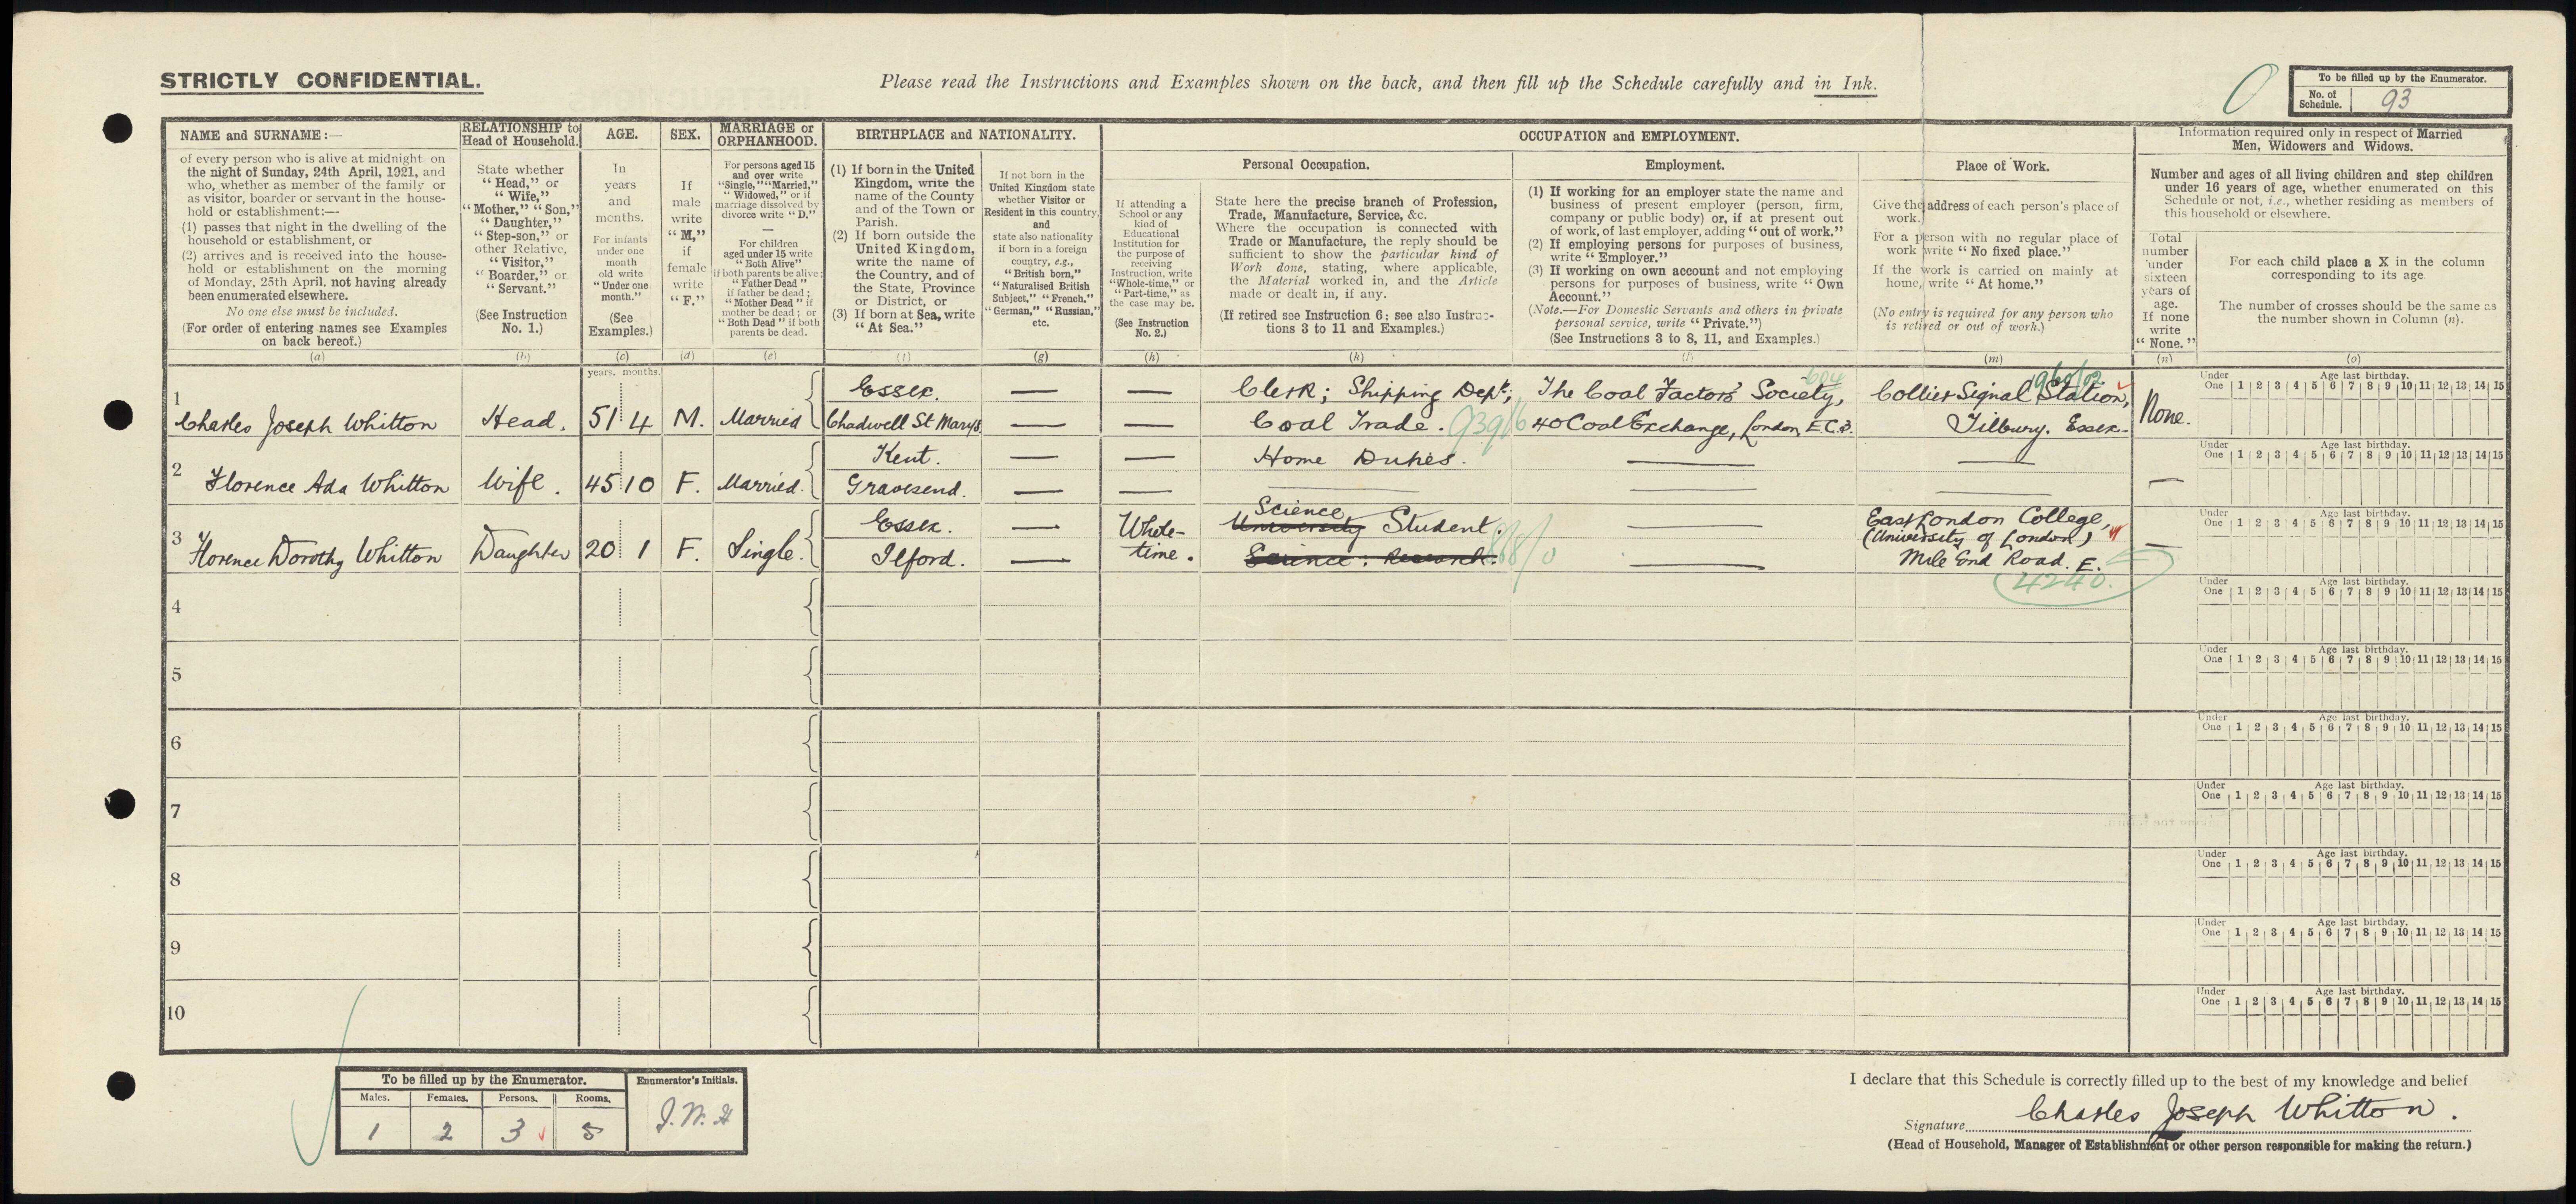 STRICTLY CONFIDENTIAL.
Please read the Instructions and Examples shown on the back, and then fill up the Schedule carefully and in Ink.
To be filled up by the Enumerator.
No. of Schedule. 93
NAME and SURNAME:—
of every person who is alive at midnight on
the night of Sunday, 24th April, 1921, and
who, whether as member of the family or
as visitor, boarder or servant in the house-
hold or establishment:—
(1) passes that night in the dwelling of the
household or establishment, or
(2) arrives and is received into the house-
hold or establishment on the morning
of Monday, 25th April, not having already
been enumerated elsewhere.
No one else must be included.
(For order of entering names see Examples
on back hereof.)
(a)
RELATIONSHIP to
Head of Household.
State whether
"Head," or
"Wife,"
"Mother," "Son,"
"Daughter,"
"Step-son," or
other Relative,
"Visitor,"
"Boarder," or
"Servant."
(See Instruction
No. 1.)
(b)
AGE.
In
years
and
months.
For infants
under one
month
old write
"Under one
month."
(See
Examples.)
(c)
SEX.
If
male
write
"M,"
if
female
write
"F."
(d)
MARRIAGE or
ORPHANHOOD.
For persons aged 15
and over write
"Single," "Married,"
"Widowed," or if
marriage dissolved by
divorce write "D."
—
For children
aged under 15 write
"Both Alive"
if both parents be alive;
"Father Dead"
if father be dead;
"Mother Dead" if
mother be dead; or
"Both Dead" if both
parents be dead.
(e)
BIRTHPLACE and NATIONALITY.
(1) If born in the United
Kingdom, write the
name of the County
and of the Town or
Parish.
(2) If born outside the
United Kingdom,
write the name of
the Country, and of
the State, Province
or District, or
(3) If born at Sea, write
"At Sea."
(f)
If not born in the
United Kingdom state
whether Visitor or
Resident in this country,
and
state also nationality
if born in a foreign
country, e.g.,
"British born,"
"Naturalised British
Subject," "French,"
"German," "Russian,"
etc.
(g)
OCCUPATION and EMPLOYMENT.
If attending a
School or any
kind of
Educational
Institution for
the purpose of
receiving
Instruction, write
"Whole-time," or
"Part-time," as
the case may be.
(See Instruction
No. 2.)
(h)
Personal Occupation.
State here the precise branch of Profession,
Trade, Manufacture, Service, &c.
Where the occupation is connected with
Trade or Manufacture, the reply should be
sufficient to show the particular kind of
Work done, stating, where applicable,
the Material worked in, and the Article
made or dealt in, if any.
(If retired see Instruction 6; see also Instruc-
tions 3 to 11 and Examples.)
(k)
Employment.
(1) If working for an employer state the name and
business of present employer (person, firm,
company or public body) or, if at present out
of work, of last employer, adding "out of work."
(2) If employing persons for purposes of business,
write "Employer."
(3) If working on own account and not employing
persons for purposes of business, write "Own
Account."
(Note.—For Domestic Servants and others in private
personal service, write "Private.")
(See Instructions 3 to 8, 11, and Examples.)
(l)
Place of Work.
Give the address of each person's place of
work.
For a person with no regular place of
work write "No fixed place."
If the work is carried on mainly at
home, write "At home."
(No entry is required for any person who
is retired or out of work.)
(m)
Information required only in respect of Married
Men, Widowers and Widows.
Number and ages of all living children and step children
under 16 years of age, whether enumerated on this
Schedule or not, i.e., whether residing as members of
this household or elsewhere.
Total
number
under
sixteen
years of
age.
If none
write
"None."
(n)
For each child place a X in the column
corresponding to its age.
The number of crosses should be the same as
the number shown in Column (n).
(o)
years. months.
1 Charles Joseph Whitton Head. 51 4 M. Married Essex. Chadwell St Marys — — Clerk; Shipping Dept; Coal Trade. 939/6 The Coal Factors' Society, 40 Coal Exchange, London, E.C.3. 604 Collier Signal Station, Tilbury. Essex. None.
Under One Age last birthday. 1 2 3 4 5 6 7 8 9 10 11 12 13 14 15
2 Florence Ada Whitton Wife. 45 10 F. Married. Kent. Gravesend. — — Home Duties. — — —
Under One Age last birthday. 1 2 3 4 5 6 7 8 9 10 11 12 13 14 15
3 Florence Dorothy Whitton Daughter 20 1 F. Single. Essex. Ilford. — Whole-time. Science University Student. Science: Research. 868/0 — East London College, (University of London) Mile End Road. E. 4240. —
Under One Age last birthday. 1 2 3 4 5 6 7 8 9 10 11 12 13 14 15
4
Under One Age last birthday. 1 2 3 4 5 6 7 8 9 10 11 12 13 14 15
5
Under One Age last birthday. 1 2 3 4 5 6 7 8 9 10 11 12 13 14 15
6
Under One Age last birthday. 1 2 3 4 5 6 7 8 9 10 11 12 13 14 15
7
Under One Age last birthday. 1 2 3 4 5 6 7 8 9 10 11 12 13 14 15
8
Under One Age last birthday. 1 2 3 4 5 6 7 8 9 10 11 12 13 14 15
9
Under One Age last birthday. 1 2 3 4 5 6 7 8 9 10 11 12 13 14 15
10
Under One Age last birthday. 1 2 3 4 5 6 7 8 9 10 11 12 13 14 15
To be filled up by the Enumerator.
Males. Females. Persons. Rooms.
1 2 3 5
Enumerator's Initials.
J.W.H
I declare that this Schedule is correctly filled up to the best of my knowledge and belief
Signature Charles Joseph Whitton.
(Head of Household, Manager of Establishment or other person responsible for making the return.)